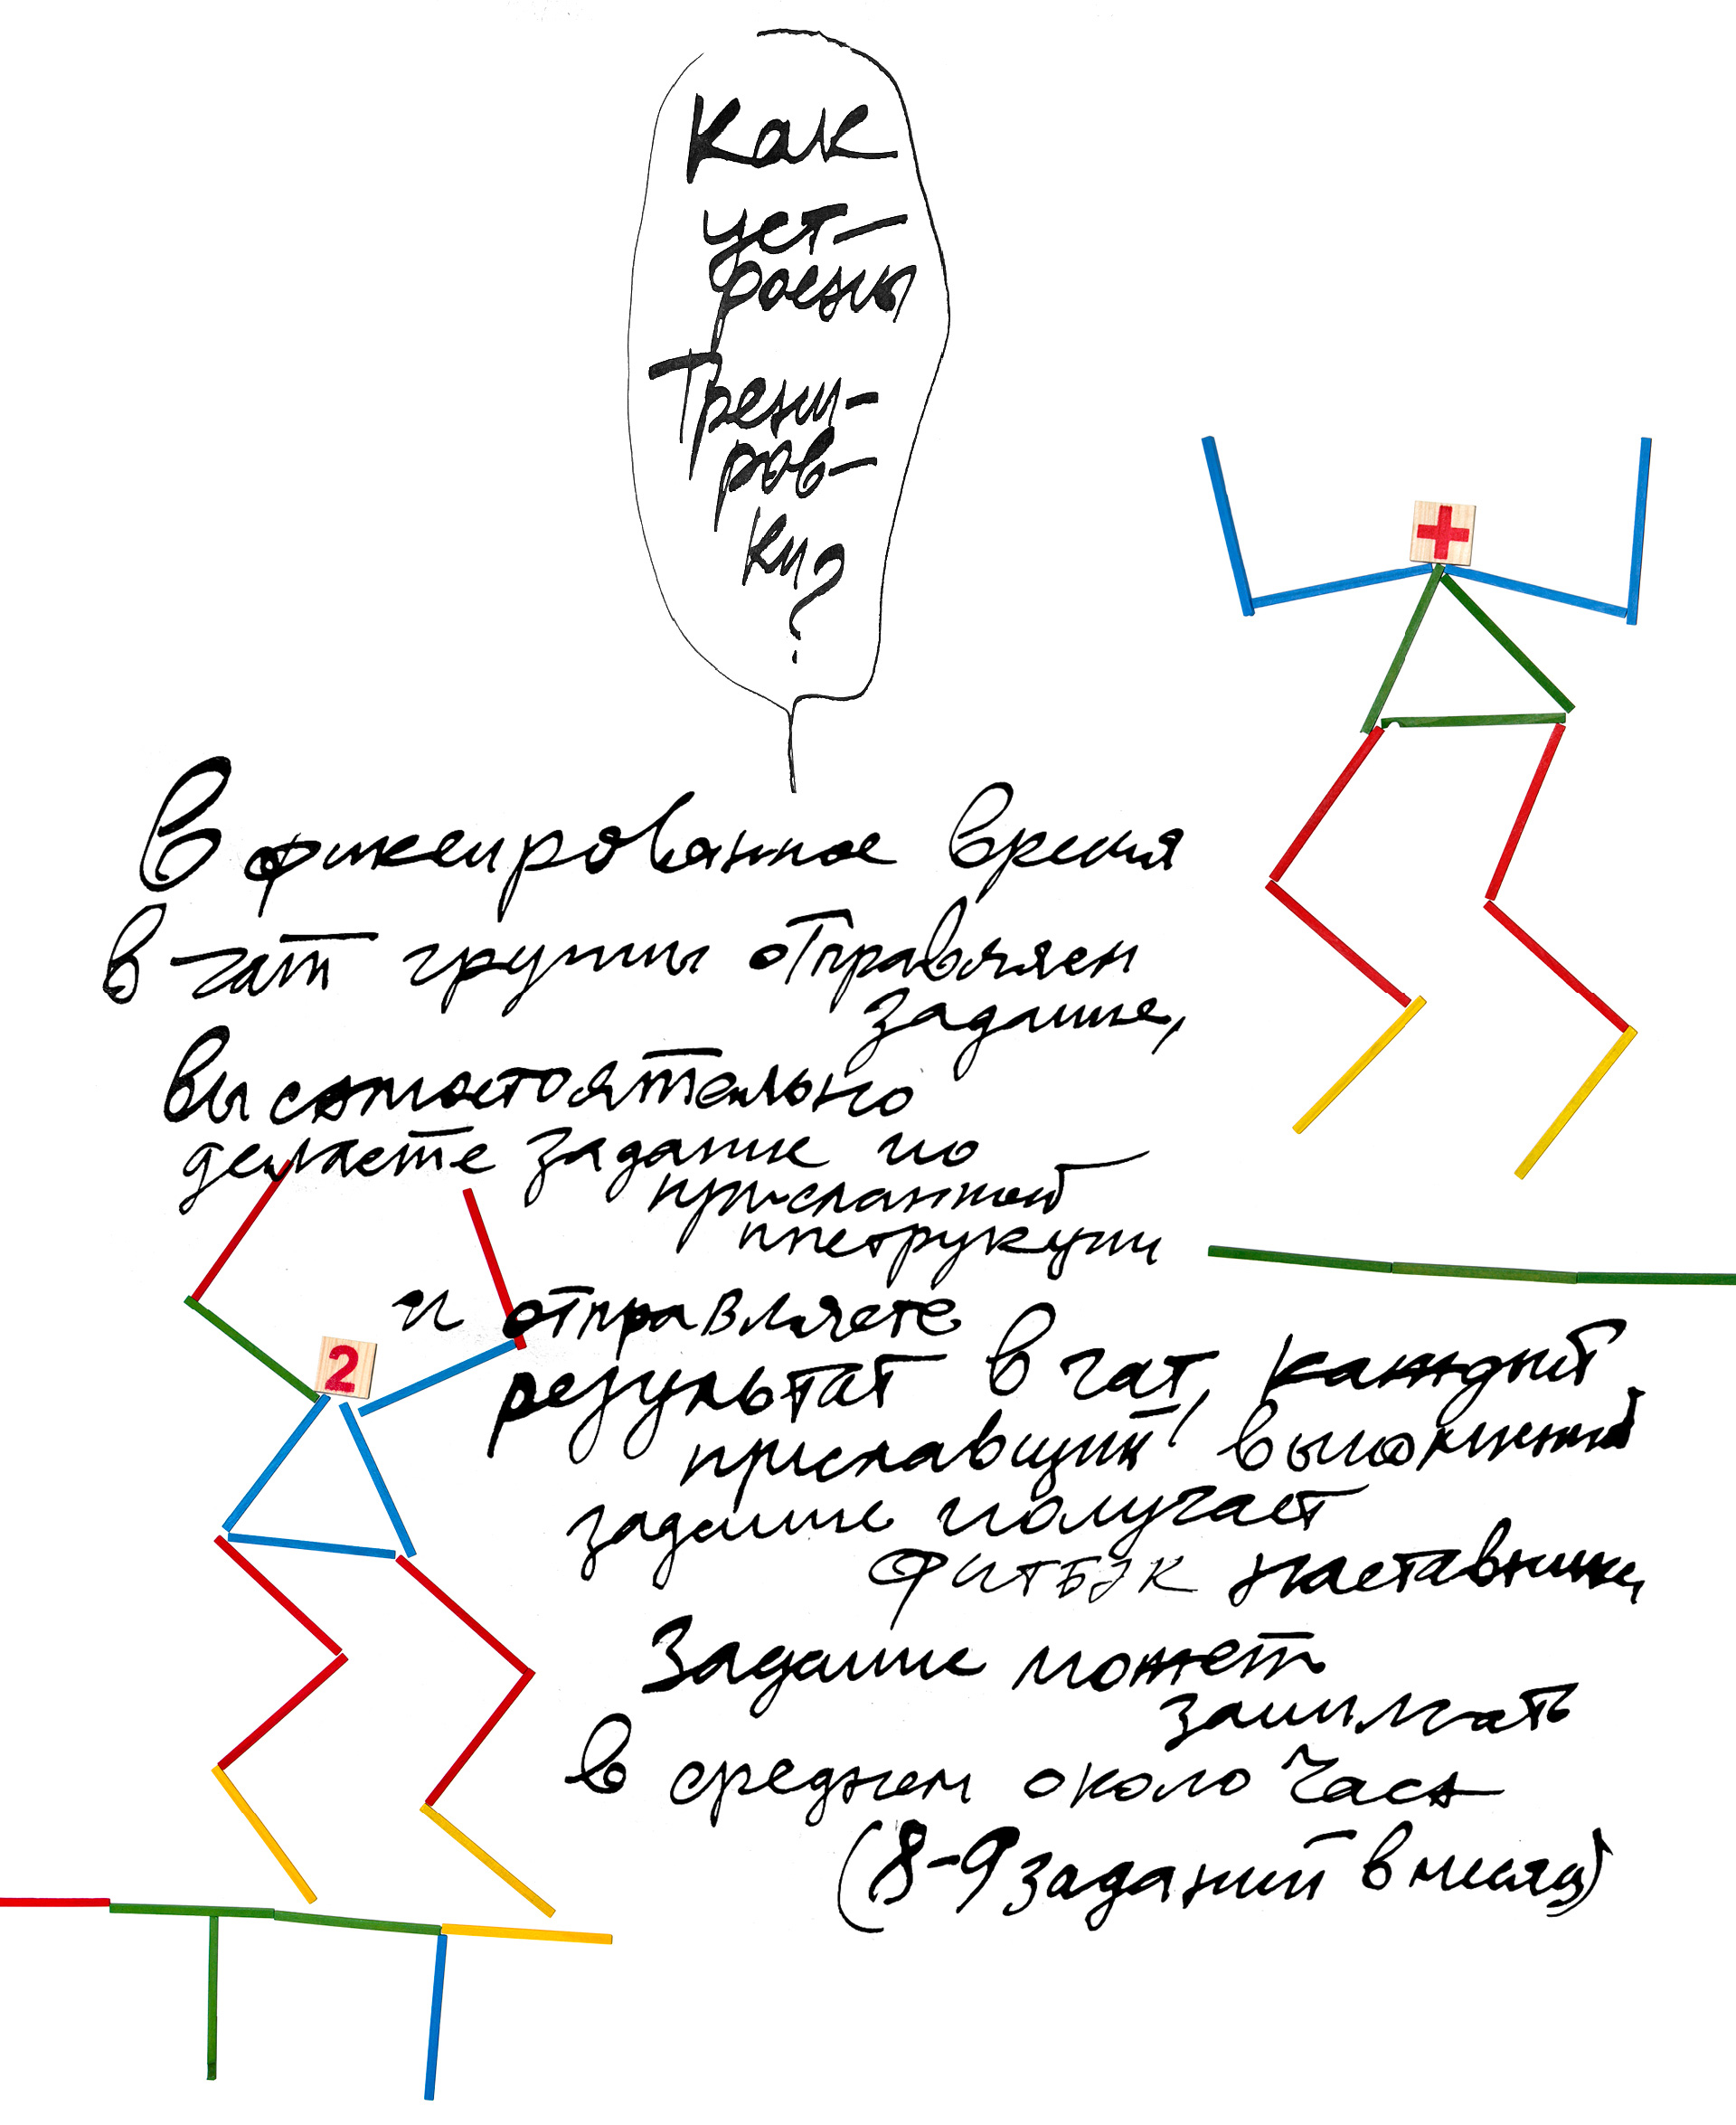 Как
уст-
роены
Трени-
ров-
ки?
В фиксированное время
в чат группы отправляем
задание,
вы самостоятельно
делаете задание по
присланной
инструкции
и отправляете
результат в чат, каждый
приславший выполненное
задание получает
фитбэк наставника,
Задание может
занимать
в среднем около часа
(8-9 заданий в месяц)
+
2